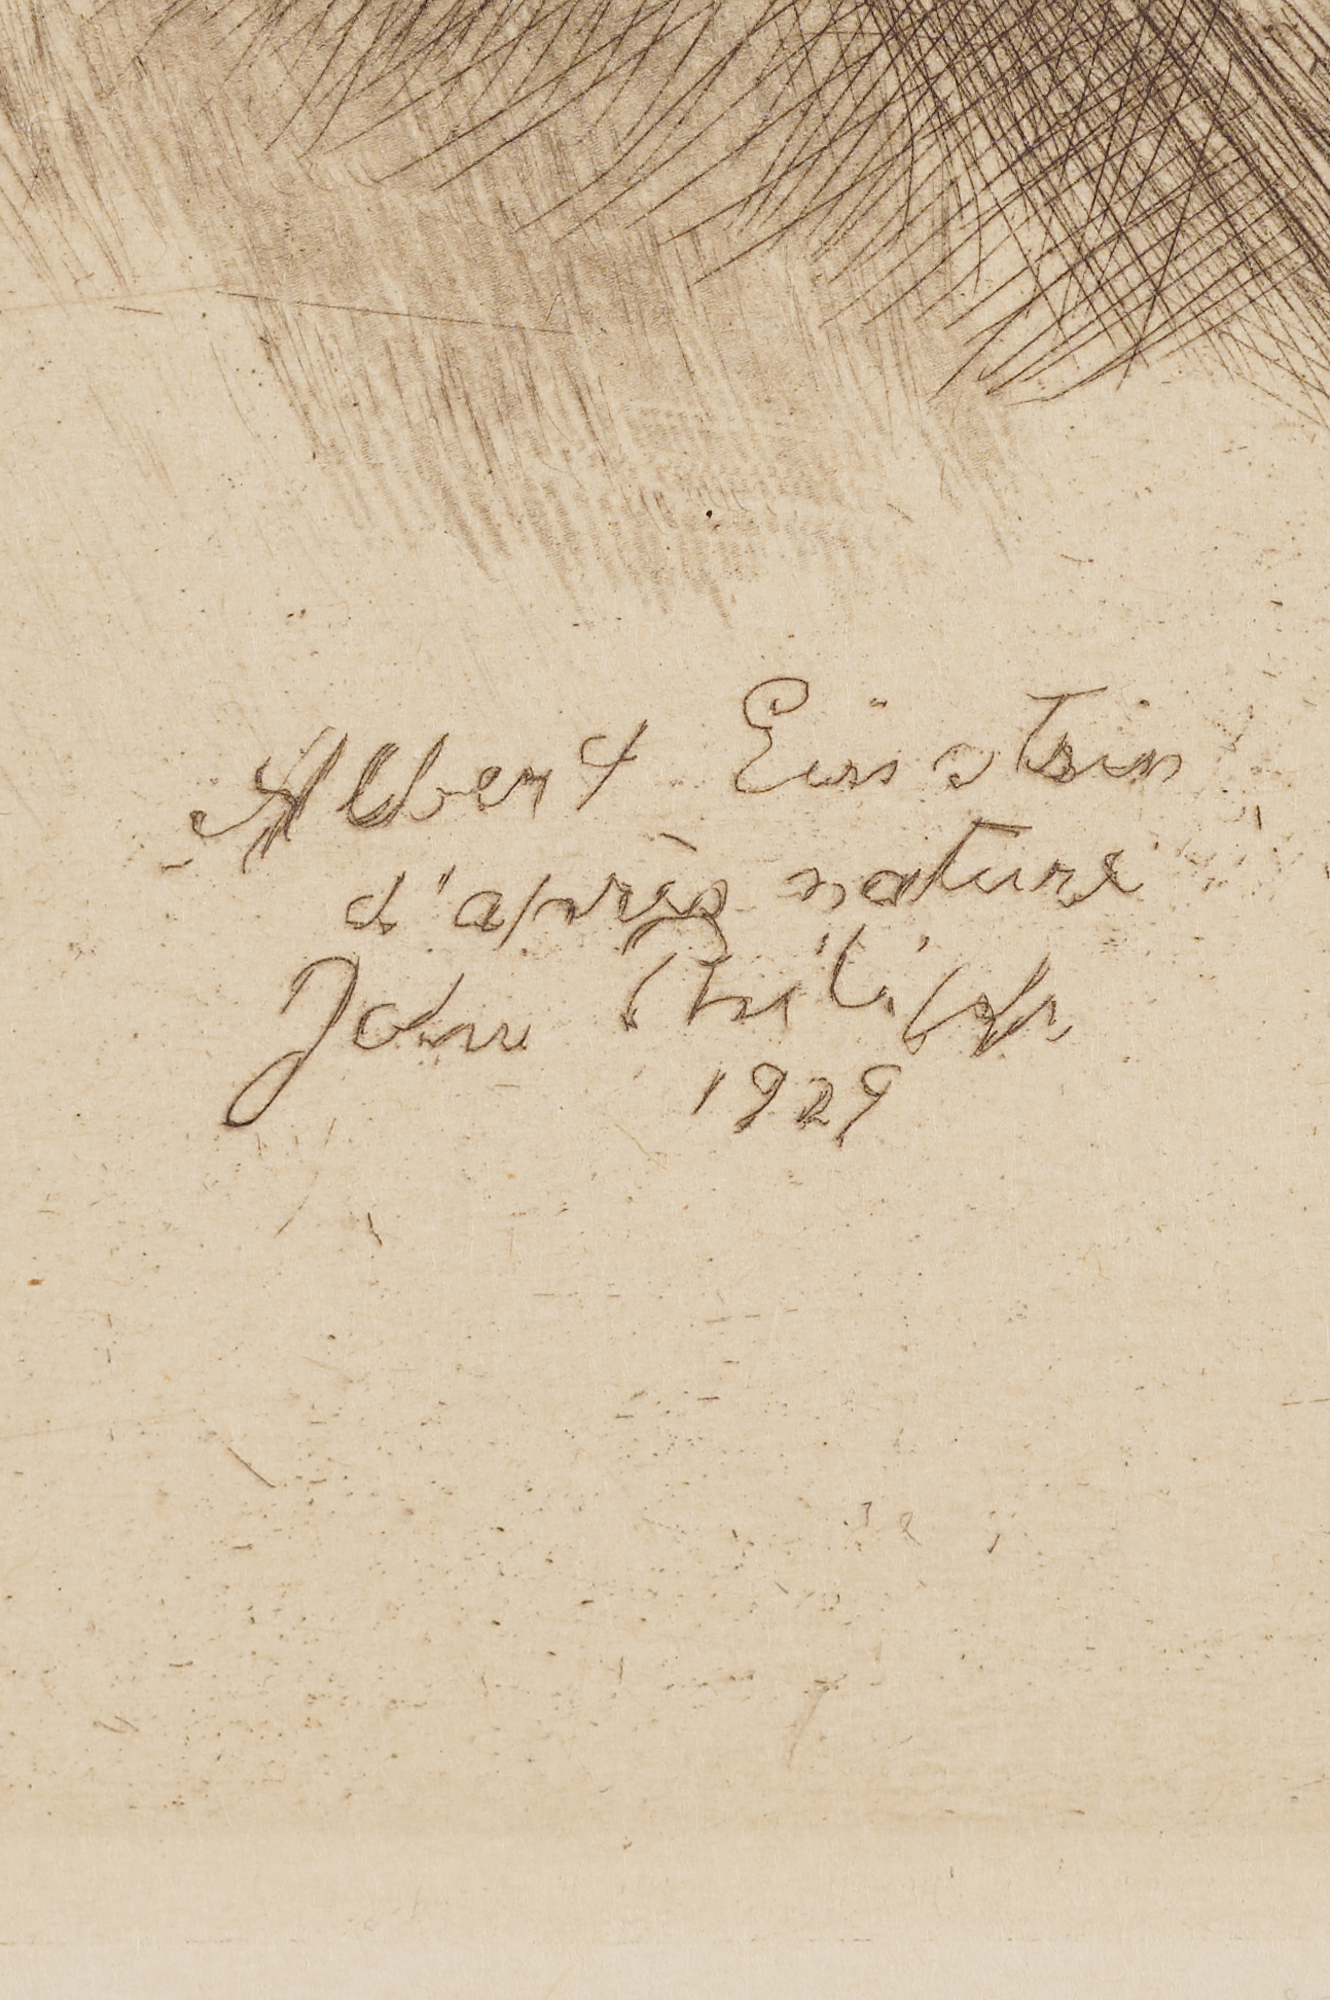 Albert Einstein
d'après nature
John Philipp
1929